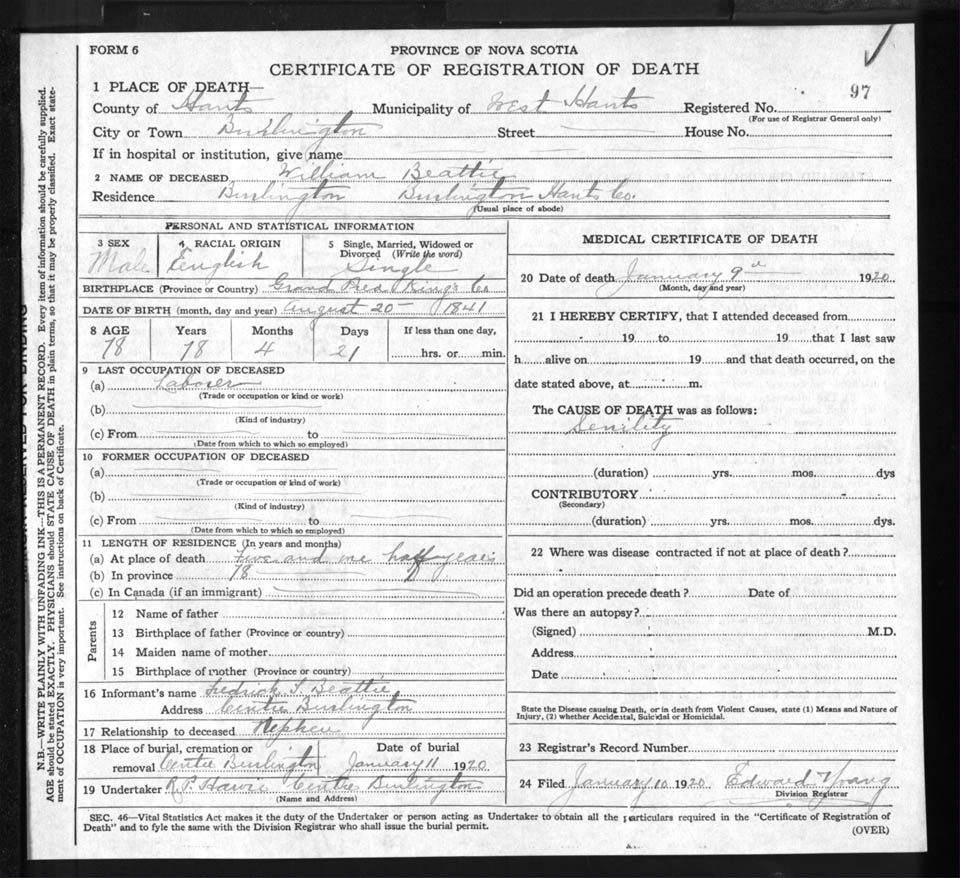 FORM 6
PROVINCE OF NOVA SCOTIA
CERTIFICATE OF REGISTRATION OF DEATH
97
1 PLACE OF DEATH—
County of Hants Municipality of West Hants Registered No.
(For use of Registrar General only)
City or Town Burlington Street House No.
If in hospital or institution, give name
2 NAME OF DECEASED William Beattie
Residence Burlington Burlington Hants Co.
(Usual place of abode)
PERSONAL AND STATISTICAL INFORMATION
3 SEX Male
4 RACIAL ORIGIN English
5 Single, Married, Widowed or Divorced (Write the word) Single
BIRTHPLACE (Province or Country) Grand Pre Kings Co
DATE OF BIRTH (month, day and year) August 20 1841
8 AGE Years Months Days If less than one day,
78 78 4 21 hrs. or min.
9 LAST OCCUPATION OF DECEASED
(a) Laborer
(Trade or occupation or kind or work)
(b)
(Kind of industry)
(c) From to
(Date from which to which so employed)
10 FORMER OCCUPATION OF DECEASED
(a)
(Trade or occupation or kind of work)
(b)
(Kind of industry)
(c) From to
(Date from which to which so employed)
11 LENGTH OF RESIDENCE (In years and months)
(a) At place of death Five and one half years
(b) In province 78
(c) In Canada (if an immigrant)
Parents
12 Name of father
13 Birthplace of father (Province or country)
14 Maiden name of mother
15 Birthplace of mother (Province or country)
16 Informant's name Fedrick S. Beattie
Address Centre Burlington
17 Relationship to deceased Nephew
18 Place of burial, cremation or removal Centre Burlington Date of burial January 11 1920
19 Undertaker Centre Burlington
(Name and Address)
MEDICAL CERTIFICATE OF DEATH
20 Date of death January 9 1920
(Month, day and year)
21 I HEREBY CERTIFY, that I attended deceased from
19 to 19 that I last saw
h alive on 19 and that death occurred, on the
date stated above, at m.
The CAUSE OF DEATH was as follows:
Senility
(duration) yrs. mos. dys
CONTRIBUTORY
(Secondary)
(duration) yrs. mos. dys.
22 Where was disease contracted if not at place of death?
Did an operation precede death? Date of
Was there an autopsy?
(Signed) M.D.
Address
Date
State the Disease causing Death, or in death from Violent Causes, state (1) Means and Nature of
Injury, (2) whether Accidental, Suicidal or Homicidal.
23 Registrar's Record Number
24 Filed January 10 1920 Edward Young
Division Registrar
SEC. 46—Vital Statistics Act makes it the duty of the Undertaker or person acting as Undertaker to obtain all the particulars required in the "Certificate of Registration of
Death" and to fyle the same with the Division Registrar who shall issue the burial permit.
(OVER)
N.B.—WRITE PLAINLY WITH UNFADING INK—THIS IS A PERMANENT RECORD. Every item of information should be carefully supplied.
AGE should be stated EXACTLY. PHYSICIANS should STATE CAUSE OF DEATH in plain terms, so that it may be properly classified. Exact state-
ment of OCCUPATION is very important. See instructions on back of Certificate.